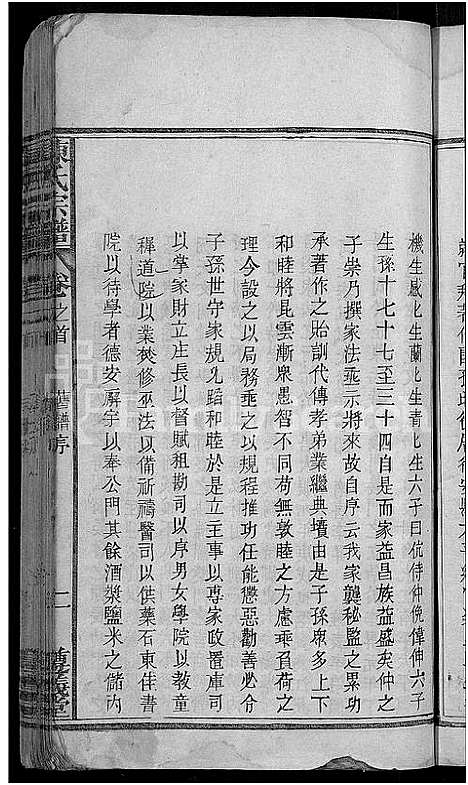 機生感感生蘭蘭生青青生六子曰伉侍仲俛偉伸六子
生孫十七十七至三十四自是而家益昌族益盛矣仲之
子崇乃撰家法垂示將來故自序云我家襲秘監之累功
承著作之貽訓代傳孝弟業繼典墳由是子孫衆多上下
和睦將昆雲漸衆愚智不同苟無敦睦之方慮乖負荷之
理今設之以局務垂之以規程推功任能懲惡勸善必分
子孫世守家規允蹈和睦於是立主事以專家政置庫司
以掌家財立庄長以督賦租勘司以序男女學院以教童
穉道院以業焚修巫法以備祈禱醫司以供藥石東佳書
院以待學者德安廨宇以奉公門其餘酒漿鹽米之儲內
陳氏宗譜 卷之首 舊譜序 二 義堂